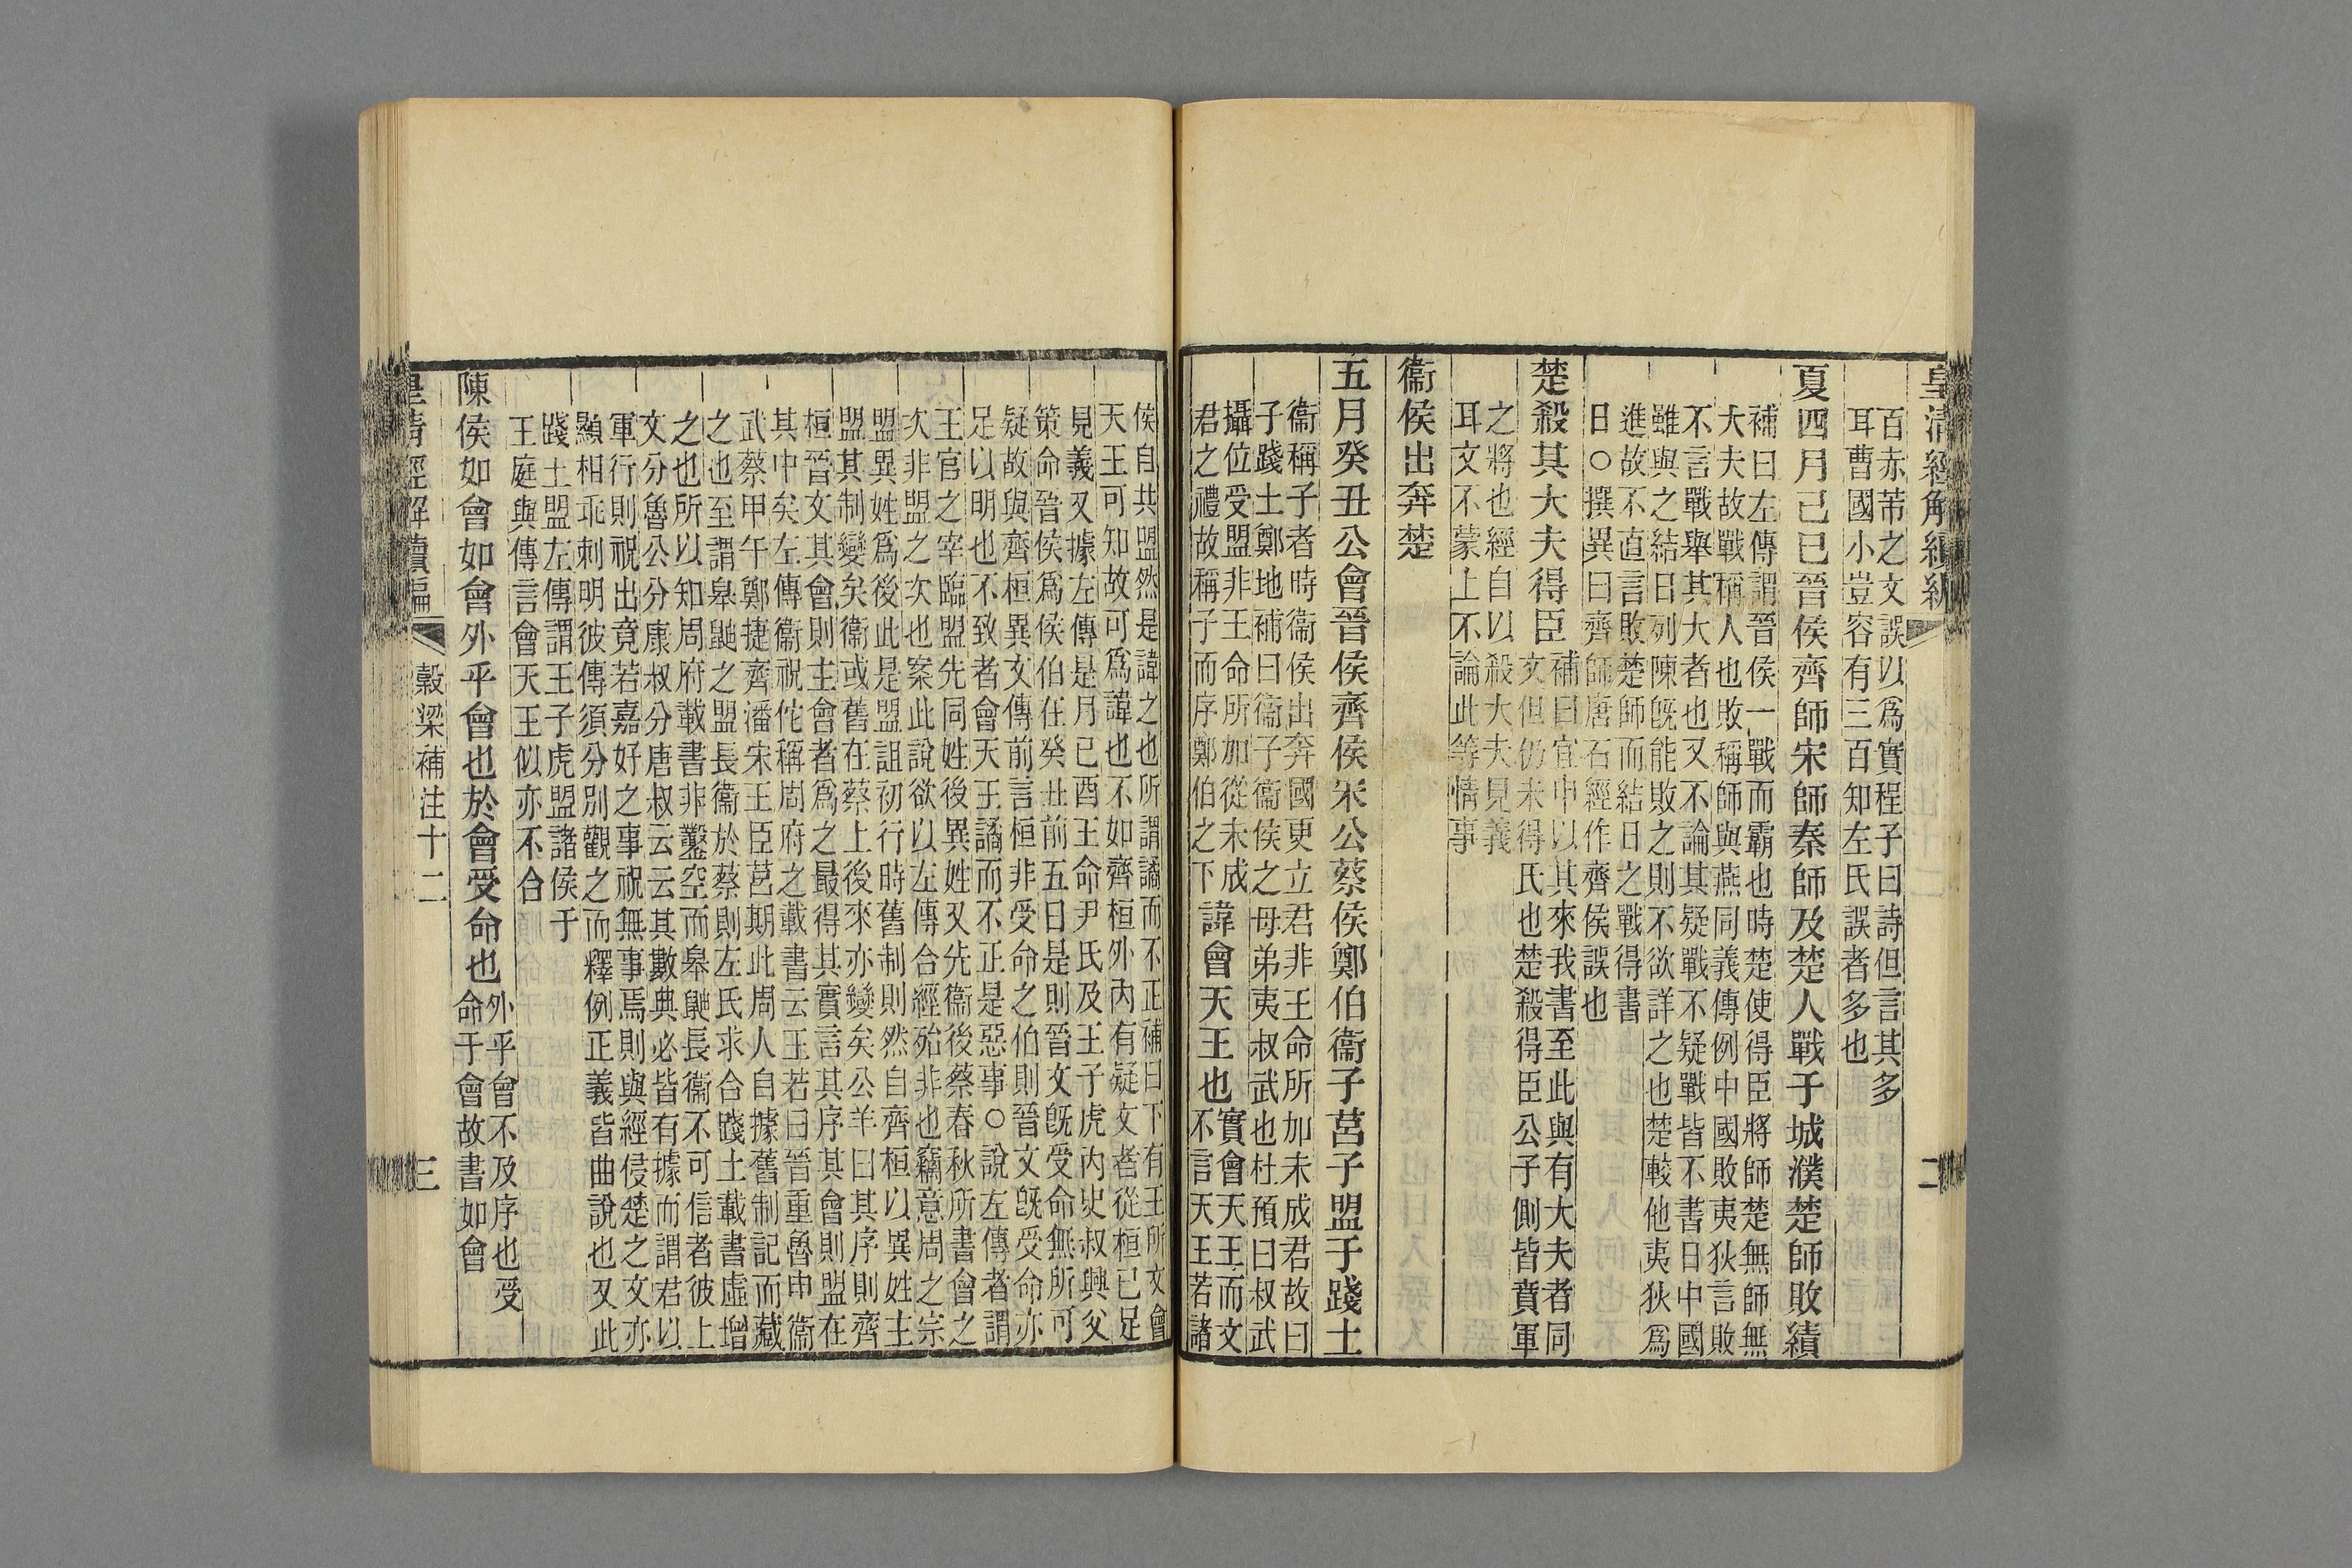 皇清經解續編
二
百赤芾之文誤以爲實程子曰詩但言其多
耳曹國小豈容有三百知左氏誤者多也
夏四月己巳晉侯齊師宋師秦師及楚人戰于城濮楚師敗績
補曰左傳謂晉侯一戰而霸也時楚使得臣將師楚無師無
大夫故戰稱人也敗稱師與燕同義傳例中國敗夷狄言敗
不言戰舉其大者也又不論其疑戰不疑戰皆不書日中國
雖與之結日列陳旣能敗之則不欲詳之也楚較他夷狄爲
進故不直言敗楚師而結日之戰得書
日○撰異曰齊師唐石經作齊侯誤也
楚殺其大夫得臣
補曰宜申以其來我書至此與有大夫者同
文但仍未得氏也楚殺得臣公子側皆賁軍
之將也經自以殺大夫見義
耳文不蒙上不論此等情事
衞侯出奔楚
五月癸丑公會晉侯齊侯宋公蔡侯鄭伯衞子莒子盟于踐土
衞稱子者時衞侯出奔國更立君非王命所加未成君故曰
子踐土鄭地補曰衞子衞侯之母弟夷叔武也杜預曰叔武
攝位受盟非王命所加從未成
君之禮故稱子而序鄭伯之下
諱會天王也
實會天王而文
不言天王若諸
侯自共盟然是諱之也所謂譎而不正補曰下有王所文會
天王可知故可爲諱也不如齊桓外內有疑文者從桓已足
見義又據左傳是月己酉王命尹氏及王子虎內史叔興父
策命晉侯爲侯伯在癸丑前五日是則晉文旣受命無所可
疑故與齊桓異文傳前言桓非受命之伯則晉文旣受命亦
足以明也不致者會天王譎而不正是惡事○說左傳者謂
王官之宰臨盟先同姓後異姓又先衞後蔡春秋所書會之
次非盟之次也案此說欲以左傳合經殆非也竊意周之宗
盟異姓爲後此是盟詛初行時舊制則然自齊桓以異姓主
盟其制變矣衞或舊在蔡上後來亦變矣公羊曰其序則齊
桓晉文其會則主會者爲之最得其實言其序其會則盟在
其中矣左傳衞祝佗稱周府之載書云王若曰晉重魯申衞
武蔡甲午鄭捷齊潘宋王臣莒期此周人自據舊制記而藏
之也至謂皋鼬之盟長衞於蔡則左氏求合踐土載書虛增
之也所以知周府載書非鑿空而皋鼬長衞不可信者彼上
文分魯公分康叔分唐叔云云其數典必皆有據而謂君以
軍行則祝出竟若嘉好之事祝無事焉則與經侵楚之文亦
顯相乖剌明彼傳須分別觀之而釋例正義皆曲說也又此
踐土盟左傳謂王子虎盟諸侯于
王庭與傳言會天王似亦不合
陳侯如會如會外乎會也於會受命也
外乎會不及序也受
命于會故書如會
皇清經解續編
穀梁補注十二
三